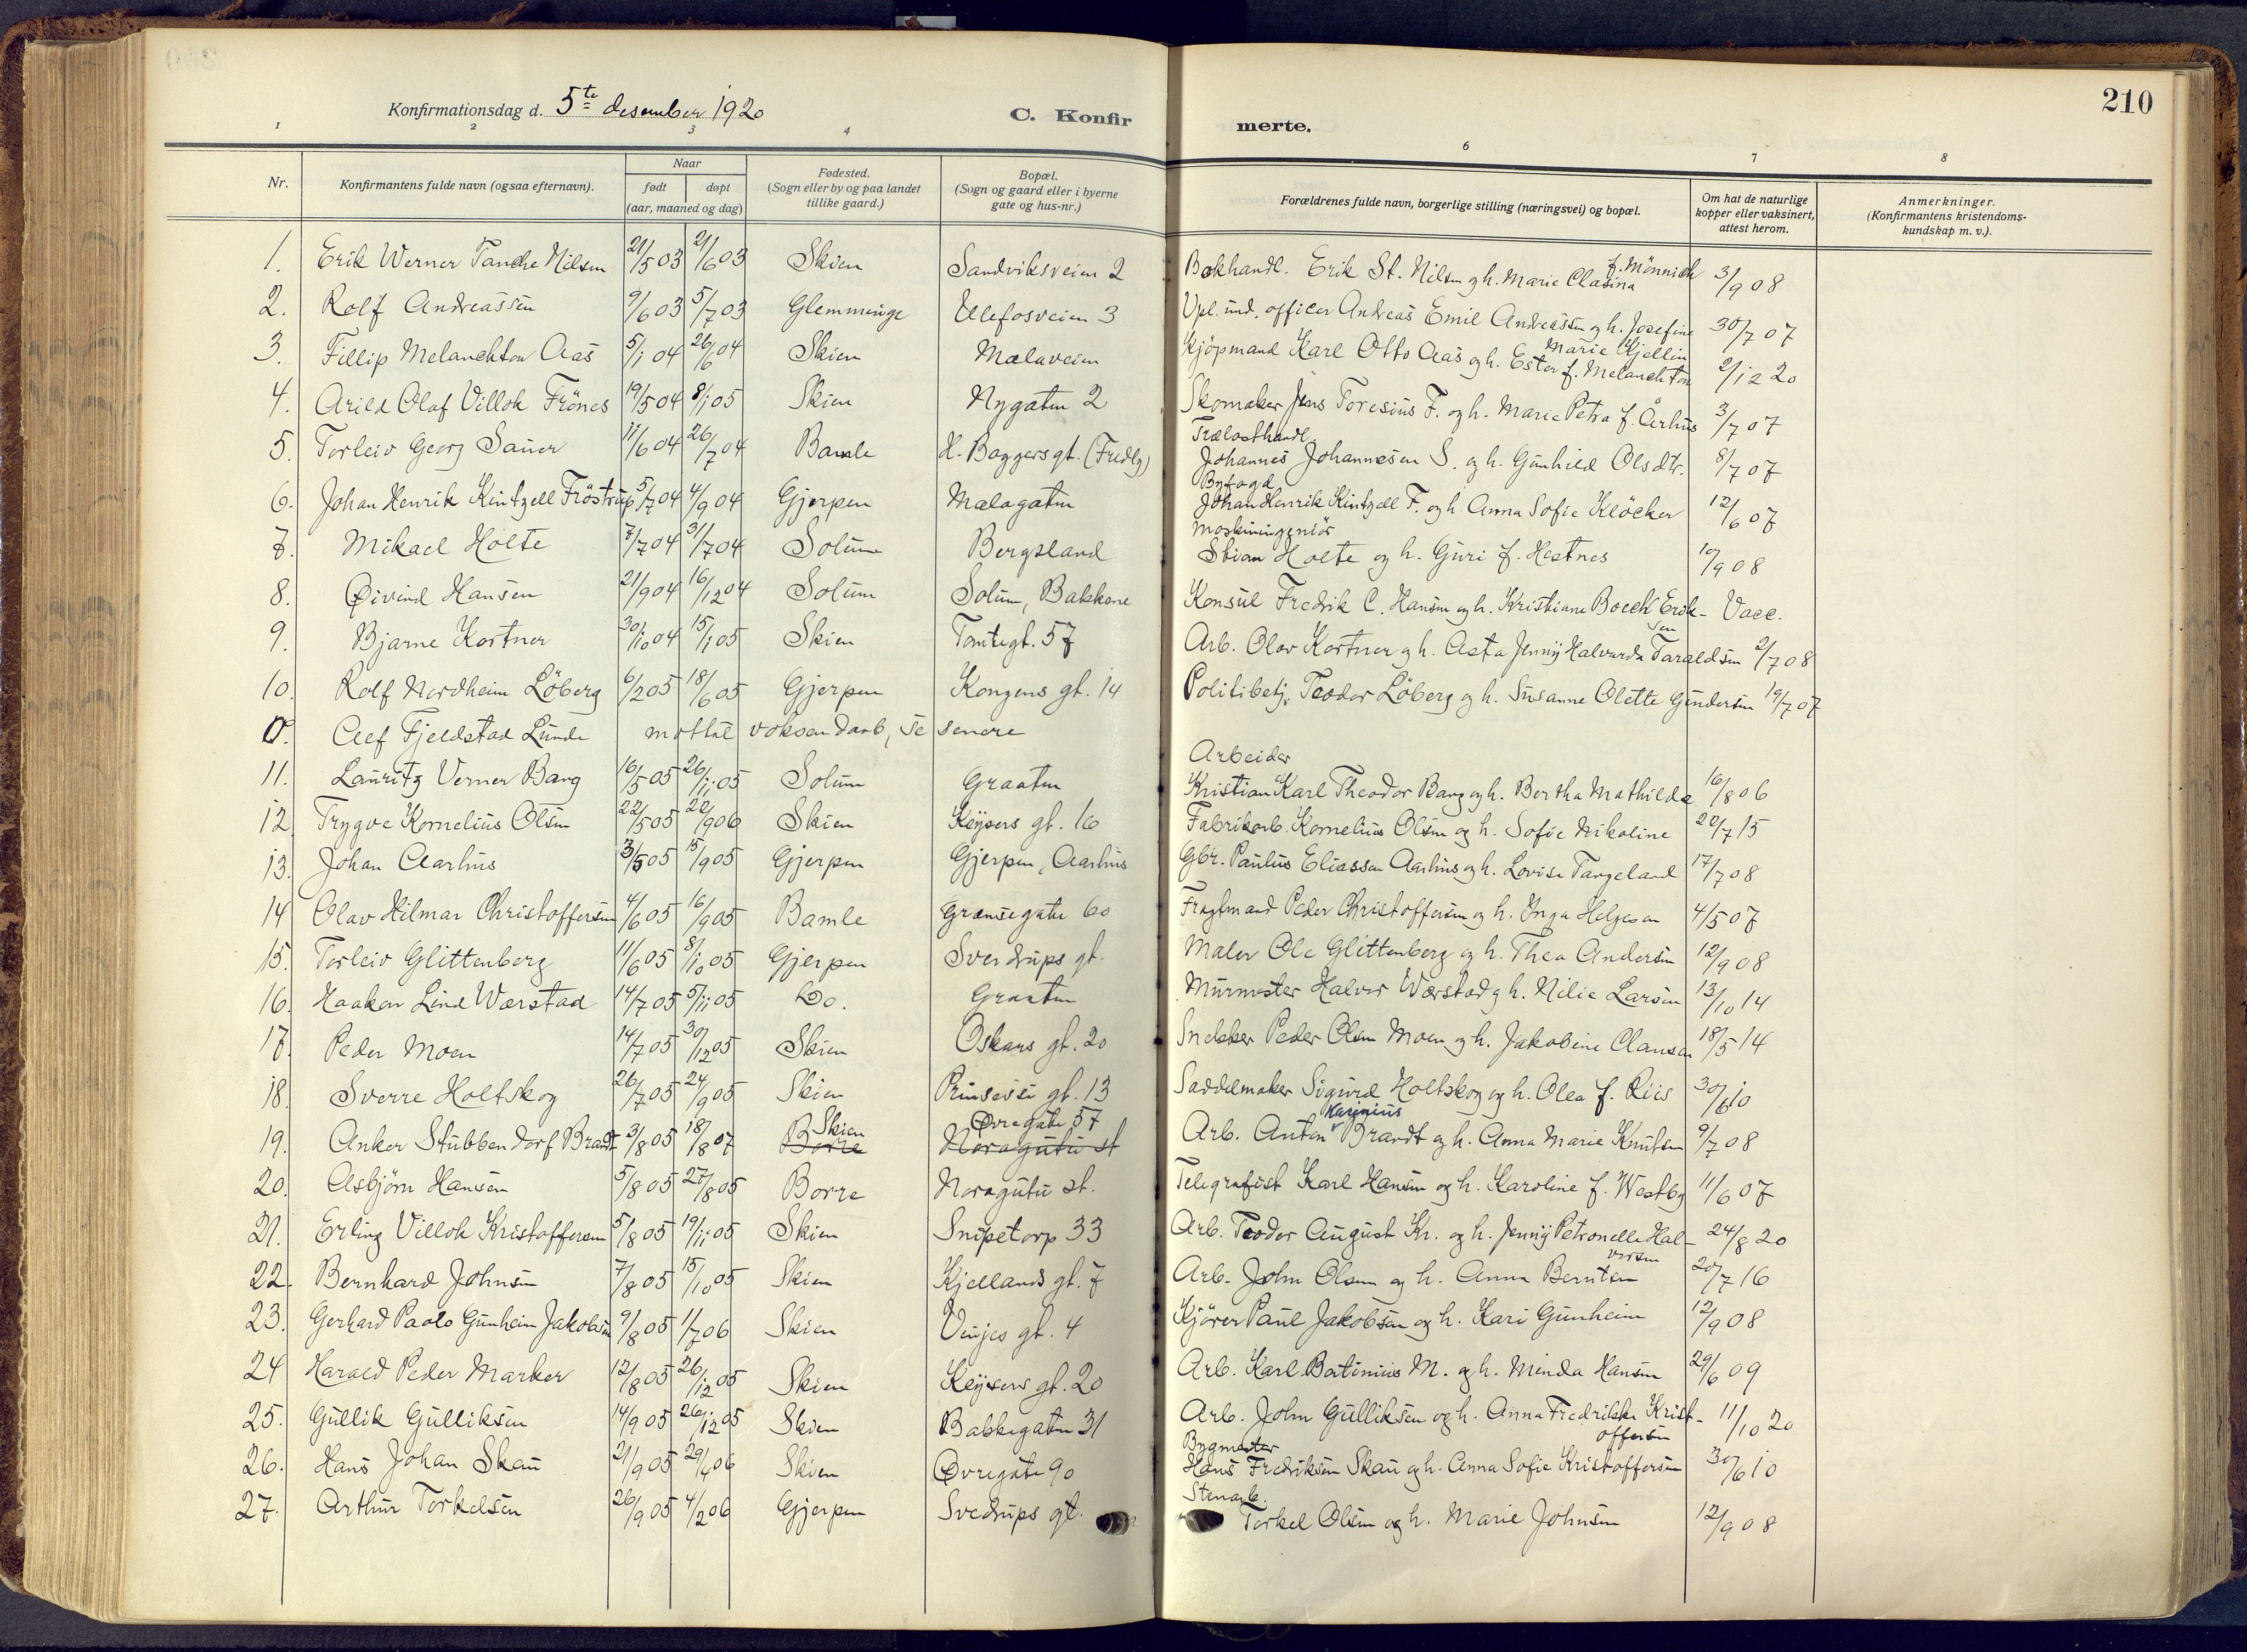 210
Konfirmationsdag d. 5te desember 1920
C. Konfirmerte.
1 2 3 4 6 7 8
Nr. Konfirmantens fulde navn (ogsaa efternavn). Naar født døpt (aar, maaned og dag) Fødested. (Sogn eller by og paa landet tillike gaard.) Bopæl. (Sogn og gaard eller i byerne gate og hus-nr.) Forældrenes fulde navn, borgerlige stilling (næringsvei) og bopæl. Om hat de naturlige kopper eller vaksinert, attest herom. Anmerkninger. (Konfirmantens kristendoms-kundskap m. v.).
1. Erik Werner Tanche Nilsen 21/5 03 21/6 03 Skien Sandviksveien 2 Bokhandl. Erik St. Nilsen og h. Marie Clasina f. Mönnich 3/9 08
2. Rolf Andreassen 9/6 03 5/7 03 Glemminge Ulefosveien 3 Upl. und. officer Andreas Emil Andreassen og h. Josefine Marie Kjellin 30/7 07
3. Fillip Melanchton Aas 5/1 04 26/6 04 Skien Mælaveien Kjöpmand Karl Otto Aas og h. Ester f. Melanchton 2/12 20
4. Arild Olaf Villok Frönes 19/5 04 8/1 05 Skien Nygaten 2 Skomaker Jens Toresius F. og h. Marie Petra f. Århus 3/7 07
5. Torleiv Georg Sauer 11/6 04 26/7 04 Bamle H. Baggersgt. (Fredly) Trælasthandl. Johannes Johannesen S. og h. Gunhild Olsdtr. 8/7 07
6. Johan Henrik Kintzell Fröstrup 5/7 04 4/9 04 Gjerpen Mælagaten Byfogd Johan Henrik Kintzell F. og h. Anna Sofie Klöcker 12/6 07
7. Mikael Holte 7/7 04 31/7 04 Solum Bergsland Maskiningeniör Stian Holte og h. Guri f. Hestnes 10/9 08
8. Øivind Hansen 21/9 04 16/12 04 Solum Solum, Bakkane Konsul Fredrik C. Hansen og h. Kristiane Boeck Eriksen Vacc.
9. Bjarne Kortner 30/10 04 15/1 05 Skien Tomtegt. 57 Arb. Olav Kortner og h. Asta Jenny Halvarda Taraldsen 2/7 08
10. Rolf Nordheim Löberg 6/2 05 18/6 05 Gjerpen Kongens gt. 14 Politibetj. Teodor Löberg og h. Susanne Olette Gundersen 19/7 07
0. Leif Fjeldstad Lunde mottat voksendaab, se senere
11. Lauritz Verner Bang 16/5 05 26/11 05 Solum Graaten Arbeider Kristian Karl Theodor Bang og h. Bertha Mathilde 16/8 06
12 Trygve Kornelius Olsen 22/5 05 22/9 06 Skien Keysers gt. 16 Fabrikarb. Kornelius Olsen og h. Sofie Nikoline 22/7 15
13. Johan Aarhus 3/5 05 15/9 05 Gjerpen Gjerpen, Aarhus Gbr. Paulus Eliassen Aarhus og h. Lovise Tangeland 17/7 08
14 Olav Hilmar Christoffersen 4/6 05 16/9 05 Bamle Grænsegate 60 Fragtmand Peder Christoffersen og h. Inga Helgesen 4/5 07
15. Torleiv Glittenberg 11/6 05 8/10 05 Gjerpen Sverdrups gt. Maler Ole Glittenberg og h. Thea Andersen 12/9 08
16. Haakon Lind Wærstad 14/7 05 5/11 05 Do. Graaten Murmester Halvor Wærstad og h. Nilie Larsen 13/10 14
17. Peder Moen 14/7 05 30/12 05 Skien Oskars gt. 20 Snekker Peder Olsen Moen og h. Jakobine Clausen 18/5 14
18. Sverre Holtskog 26/7 05 24/9 05 Skien Prinsesse gt. 13 Saddelmaker Sigurd Holtskog og h. Olea f. Riis 30/6 10
19. Anker Stubbendorf Brandt 3/8 05 18/8 07 Borre Skien Noragutu st Øvregate 57 Arb. Anton Karinius Brandt og h. Anna Marie Knutsen 9/7 08
20. Asbjörn Hansen 5/8 05 27/8 05 Borre Noragutu st. Telegrafist Karl Hansen og h. Karoline f. Westby 11/6 07
21. Erling Villok Kristoffersen 5/8 05 19/11 05 Skien Snipetorp 33 Arb. Teodor August Kr. og h. Jenny Petronelle Halvorsen 24/8 20
22. Bernhard Johnsen 7/8 05 15/10 05 Skien Kjellands gt. 7 Arb. John Olsen og h. Anna Berntsen 20/7 16
23. Gerhard Paolo Gunheim Jakobsen 9/8 05 1/7 06 Skien Vinjes gt. 4 Kjörer Paul Jakobsen og h. Kari Gunheim 12/9 08
24 Harald Peder Marker 12/8 05 26/12 05 Skien Keysers gt. 20 Arb. Karl Bertinius M. og h. Minda Hansen 29/6 09
25. Gullik Gulliksen 14/9 05 26/12 05 Skien Bakkegaten 31 Arb. John Gulliksen og h. Anna Fredrikke Kristoffersen 11/10 20
26. Hans Johan Skau 21/9 05 29/4 06 Skien Øvregate 90 Bygmester Hans Fredriksen Skau og h. Anna Sofie Kristoffersen 30/6 10
27. Arthur Torkelsen 26/9 05 4/2 06 Gjerpen Svedrups gt. Stenarb. Torkel Olsen og h. Marie Johnsen 12/9 08